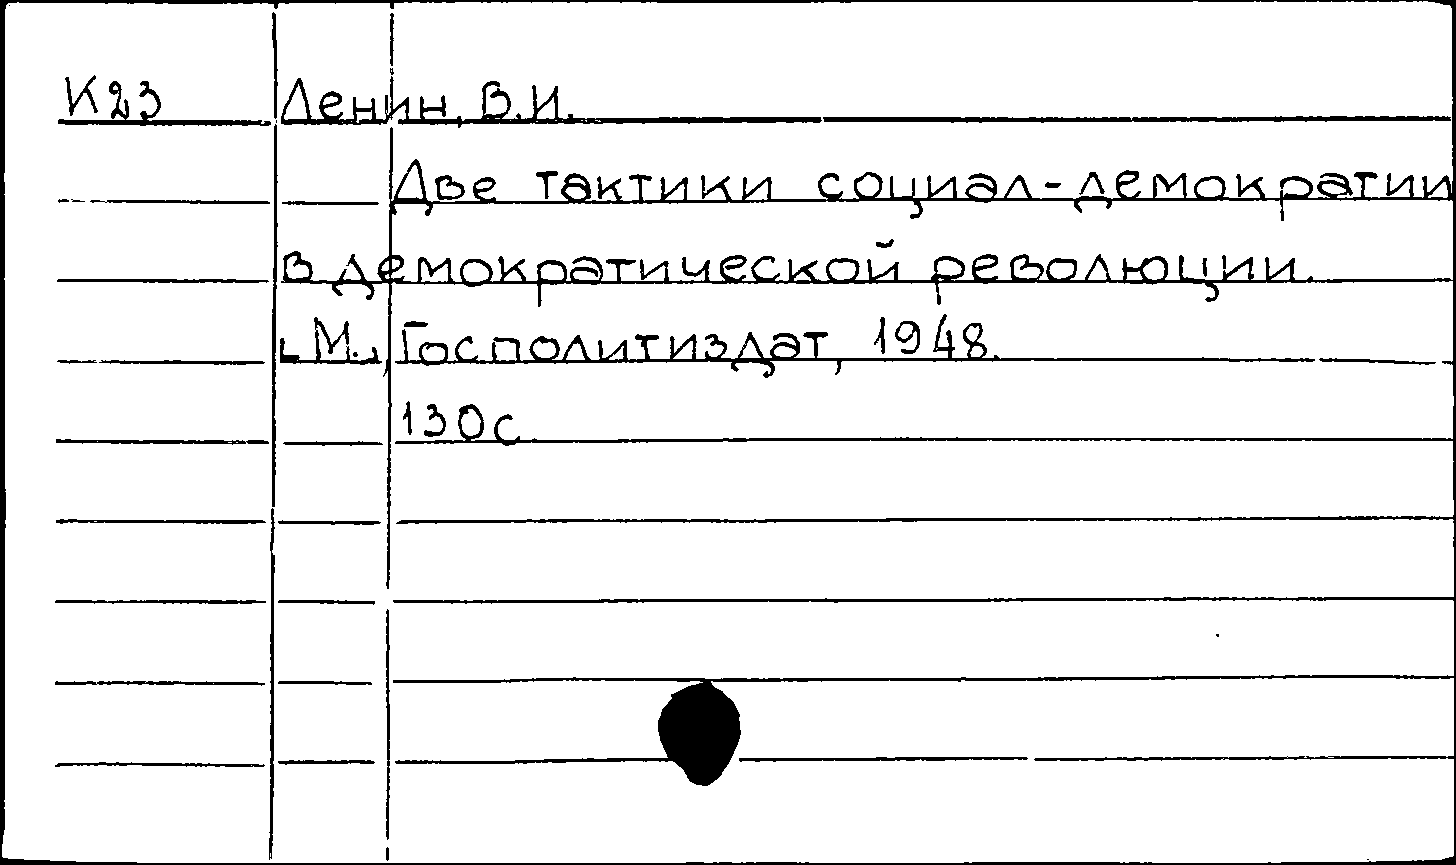 К23 Ленин, В.И.
Две тактики социал-демократии
в демократической революции.
[М.], Госполитиздат, 1948.
130с